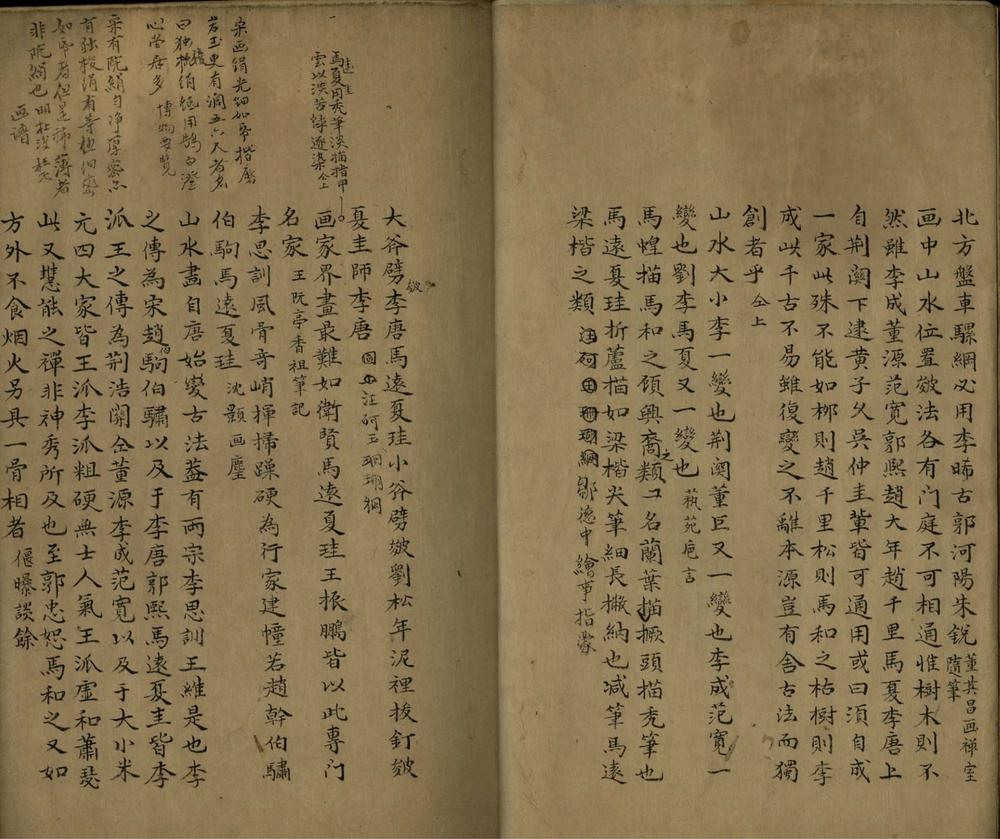 北方盤車騾綱必用李晞古郭河陽朱銳董其昌画禅室
隨筆
画中山水位置皴法各有门庭不可相通惟樹木則不
然雖李成董源范寬郭熙趙大年趙千里馬夏李唐上
自荆関下逮黄子久吳仲圭輩皆可通用或曰須自成
一家此殊不能如栁則趙千里松則馬和之枯樹則李
成此千古不易雖復變之不離本源豈有舍古法而獨
創者乎 仝上
山水大小李一變也荆関董巨又一變也李成范寬一
變也劉李馬夏又一變也 萟苑巵言
馬蝗描馬和之顧興裔之類一名蘭葉描撅頭描禿筆也
馬遠夏珪折蘆描如梁楷尖筆細長撇納也减筆馬遠
梁楷之類 鄒德中繪事指蒙
馬遠夏圭用禿筆淡描指甲
雲以淡苦綠逐染 仝上
大斧劈皴李唐馬遠夏珪小斧劈皴劉松年泥裡拔釘皴
夏圭師李唐 汪砢玉珊瑚網
画家界畫最難如衛賢馬遠夏珪王振鵬皆以此專门
名家 王阮亭香祖筆記
李思訓風骨竒峭揮掃躁硬為行家建幢若趙幹伯驌
伯駒馬遠夏珪 沈顥画麈
山水畫自唐始變古法葢有兩宗李思訓王維是也李
之傳為宋趙伯駒伯驌以及于李唐郭熙馬遠夏圭皆李
派王之傳為荆浩関仝董源李成范寬以及于大小米
元四大家皆王派李派粗硬無士人氣王派虛和蕭散
此又慧能之禪非神秀所及也至郭忠恕馬和之又如
方外不食烟火另具一骨相者 偃曝談餘
宋画絹光細如帋揩磨
若玉更有濶五六尺者名
曰獨梭絹
博物要覽
宋有院絹勻净厚密亦
有独梭絹有等極细密
如帋者但是稀薄者
非院絹也
画譜